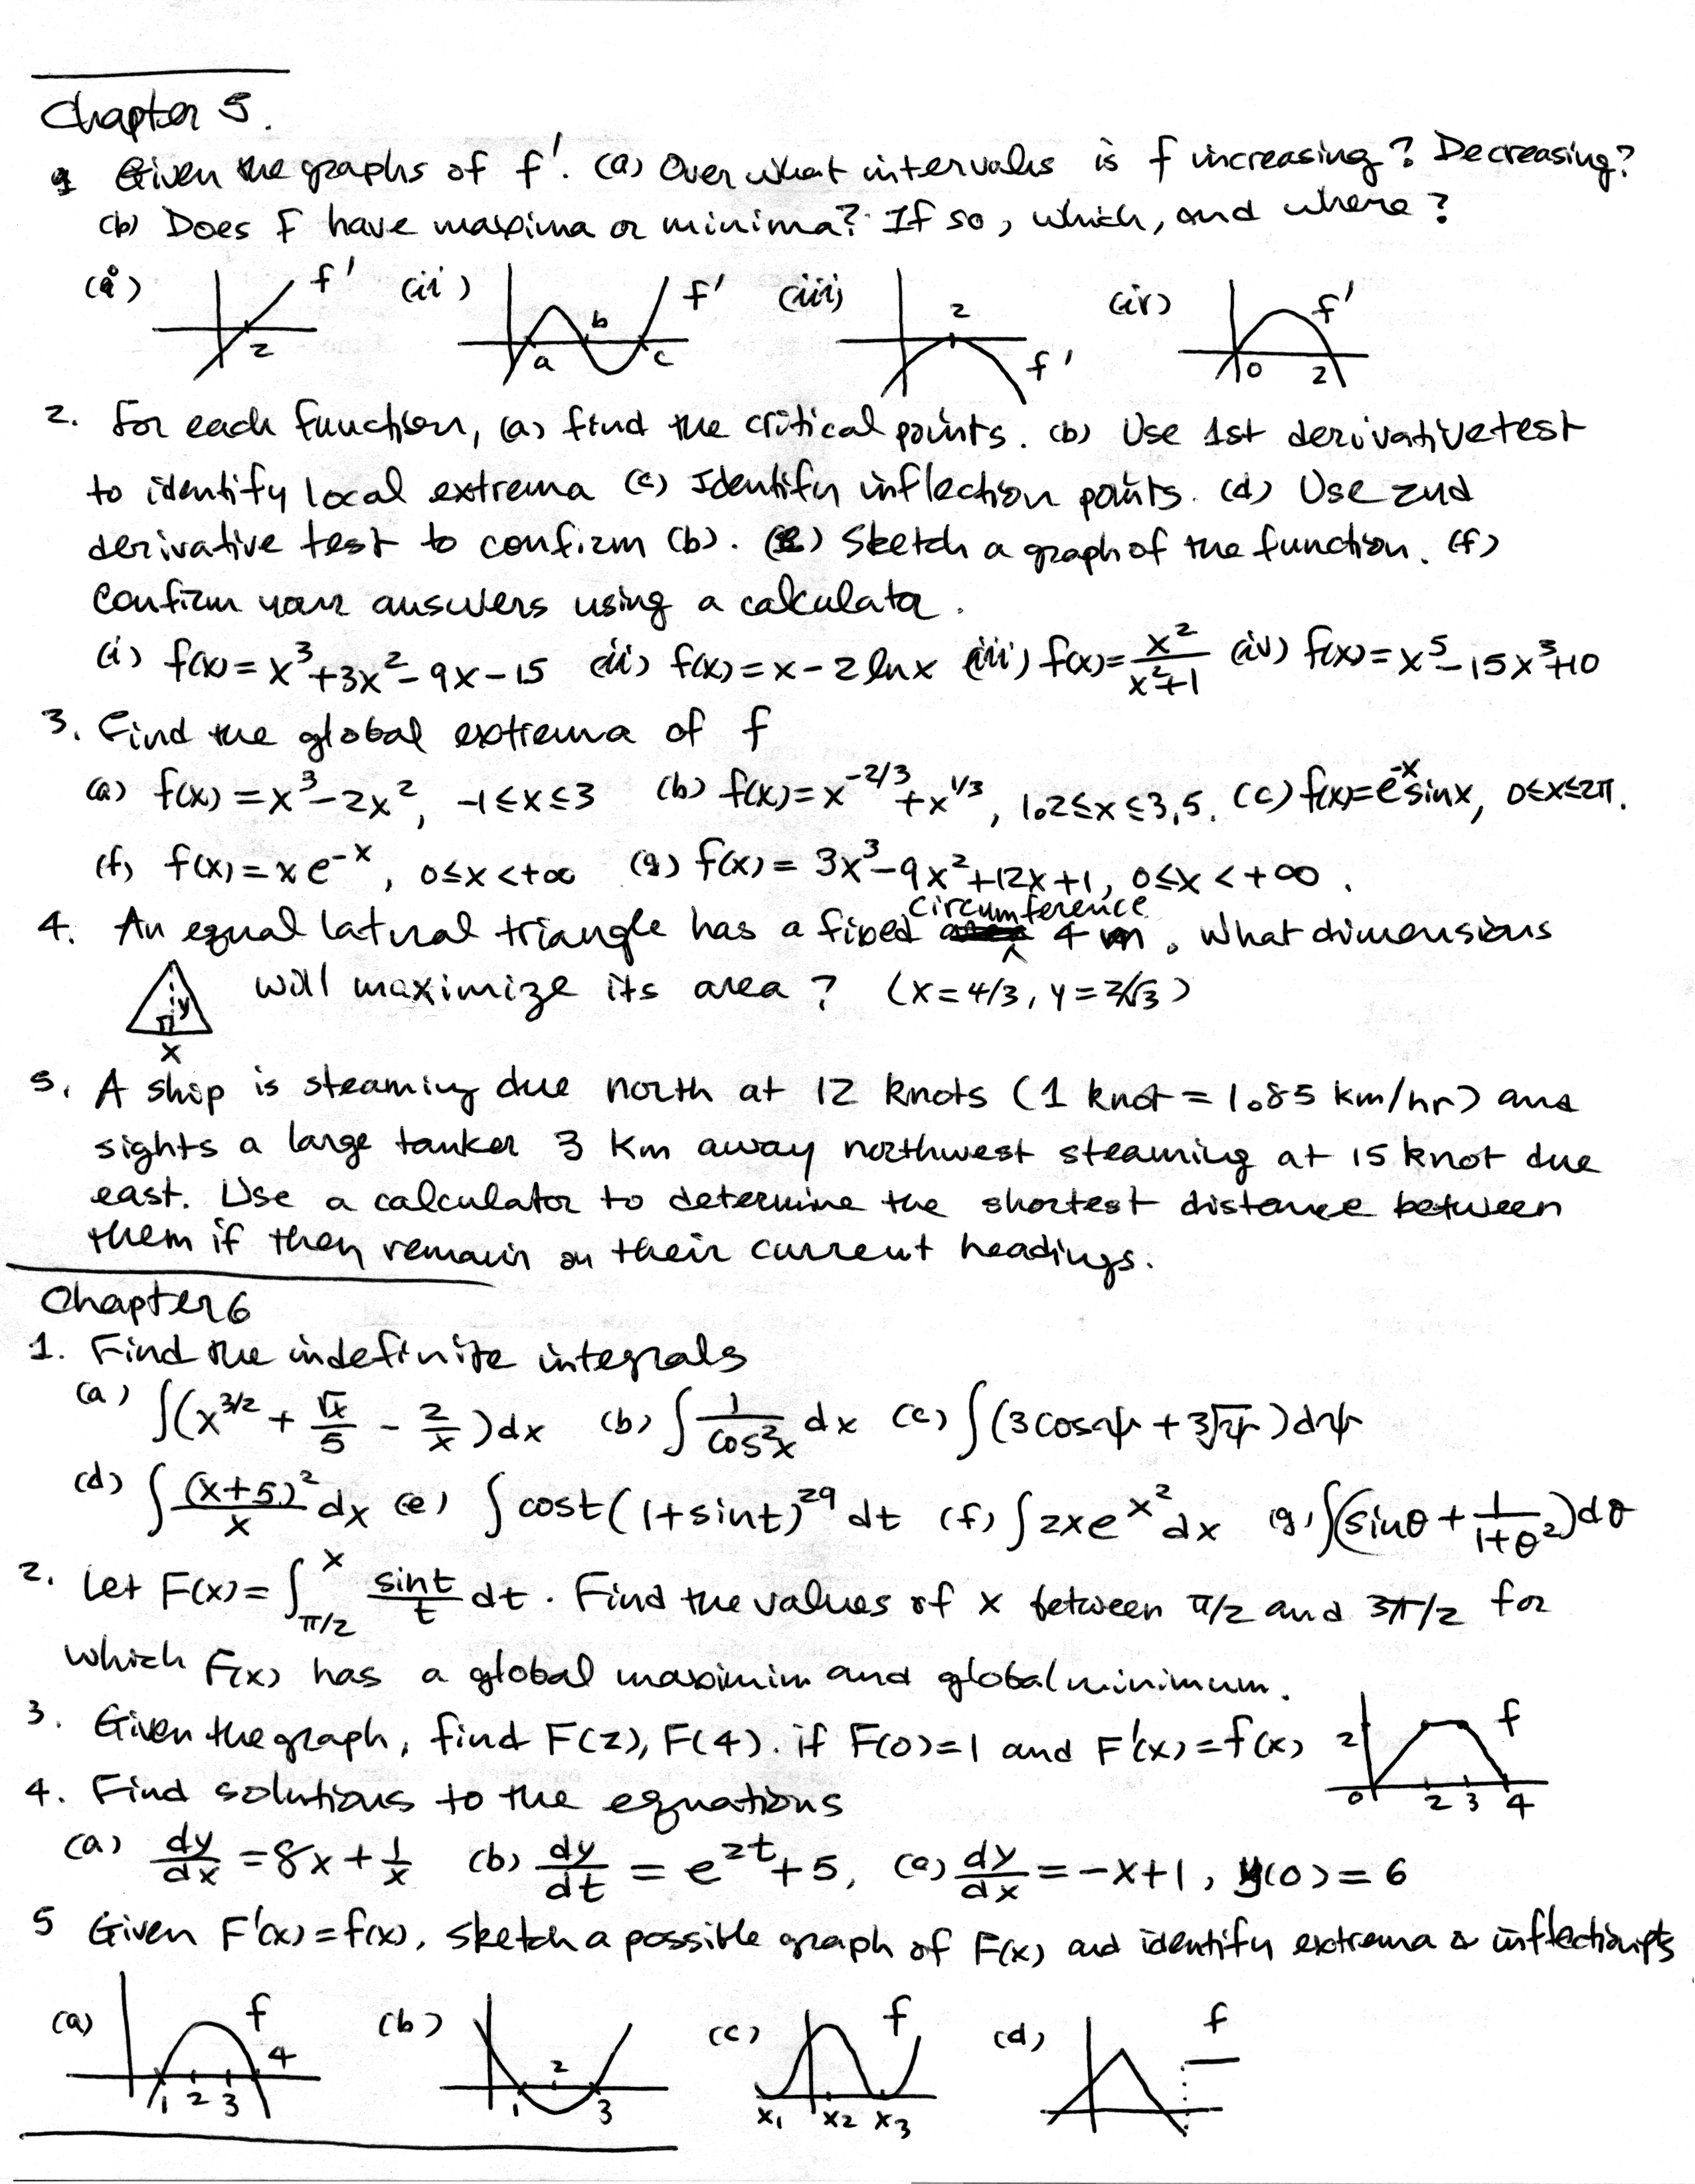 Chapter 5.
1 Given the graphs of f'. (a) Over what intervals is f increasing? Decreasing?
(b) Does f have maxima or minima? If so, which, and where?
(i) f' (ii) f' (iii) 2 (iv) f'
2 a b c f' 0 2
2. For each function, (a) find the critical points. (b) Use 1st derivative test
to identify local extrema (c) Identify inflection points. (d) Use 2nd
derivative test to confirm (b). (e) Sketch a graph of the function. (f)
Confirm your answers using a calculator.
(i) f(x) = x³+3x²-9x-15 (ii) f(x) = x-2lnx (iii) f(x) = x²/(x²+1) (iv) f(x) = x⁵-15x³+10
3. Find the global extrema of f
(a) f(x) = x³-2x², -1≤x≤3 (b) f(x) = x^(-2/3)+x^(1/3), 1.2≤x≤3.5. (c) f(x)=e^(-x)sinx, 0≤x≤2π.
(f) f(x) = xe^(-x), 0≤x<+∞ (g) f(x) = 3x³-9x²+12x+1, 0≤x<+∞.
4. An equal latural triangle has a fixed circumference 4 m. What dimensions
will maximize its area? (x=4/3, y=2/√3)
y
x
5. A ship is steaming due north at 12 knots (1 knot = 1.85 km/hr) and
sights a large tanker 3 km away northwest steaming at 15 knot due
east. Use a calculator to determine the shortest distance between
them if they remain on their current headings.
Chapter 6
1. Find the indefinite integrals
(a) ∫(x^(3/2) + √x/5 - 2/x)dx (b) ∫ 1/cos²x dx (c) ∫(3cosψ + 3√ψ)dψ
(d) ∫ (x+5)²/x dx (e) ∫ cost(1+sint)²⁹ dt (f) ∫2xe^(x²)dx (g) ∫(sinθ + 1/(1+θ²))dθ
2. Let F(x) = ∫_(π/2)^x sint/t dt. Find the values of x between π/2 and 3π/2 for
which F(x) has a global maximim and global minimum.
3. Given the graph, find F(2), F(4). if F(0)=1 and F'(x)=f(x) 2 f
0 2 3 4
4. Find solutions to the equations
(a) dy/dx = 8x + 1/x (b) dy/dt = e^(2t)+5, (c) dy/dx = -x+1, y(0) = 6
5 Given F'(x) = f(x), sketch a possible graph of F(x) and identify extrema & inflection pts
(a) f (b) (c) f (d) f
1 2 3 4 1 2 3 x₁ x₂ x₃